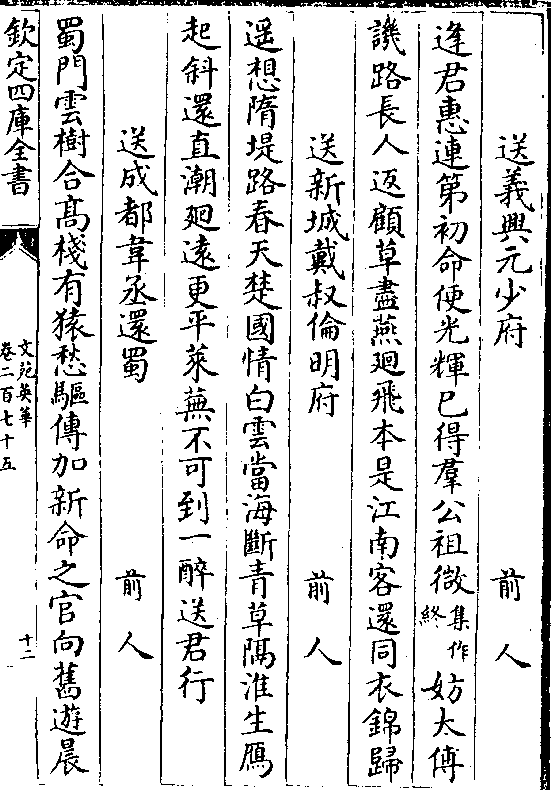 送義興元少府　前人
逢君惠連第初命便光輝已得羣公祖微集作終妨太傅
譏路長人返顧草盡燕廻飛本是江南客還同衣錦歸
送新城戴叔倫明府　前人
遥想隋堤路春天楚國情白雲當海斷青草隔淮生鴈
起斜還直潮廻遠更平萊蕪不可到一醉送君行
送成都韋丞還蜀　前人
蜀門雲樹合高棧有猿愁驅傳加新命之官向舊遊晨
欽定四庫全書
文苑英華
卷二百七十五
十二